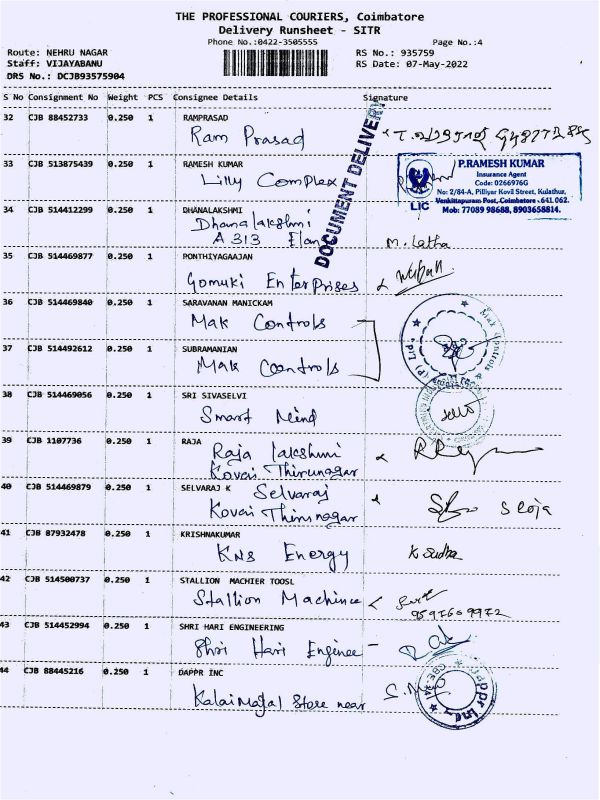 THE PROFESSIONAL COURIERS, Coimbatore
Delivery Runsheet - SITR
Phone No.:0422-3505555 Page No.:4
Route: NEHRU NAGAR RS No.: 935759
Staff: VIJAYABANU RS Date: 07-May-2022
DRS No.: DCJB93575904
S No Consignment No Weight PCS Consignee Details Signature
32 CJB 88452733 0.250 1 RAMPRASAD
Ram Prasad
DOCUMENT DELIVERY
33 CJB 513875439 0.250 1 RAMESH KUMAR
Lilly Complex
P.RAMESH KUMAR
Insurance Agent
Code: 0266976G
No: 2/84-A, Pilliyar Kovil Street, Kulathur,
Venkittapuram Post, Coimbatore - 641 062.
LIC Mob: 77089 98688, 8903658814.
34 CJB 514412299 0.250 1 DHANALAKSHMI
Dhanalakshmi
A 313 Elan
M. Latha
35 CJB 514469877 0.250 1 PONTHIYAGAAJAN
Gomuki Enterprises
36 CJB 514469840 0.250 1 SARAVANAN MANICKAM
Mak Controls
37 CJB 514492612 0.250 1 SUBRAMANIAN
Mak Controls
Mak Controls (P) Ltd
38 CJB 514469056 0.250 1 SRI SIVASELVI
Smart Mind
39 CJB 1107736 0.250 1 RAJA
Raja lakshmi
Kovai Thirunagar
40 CJB 514469879 0.250 1 SELVARAJ K
Selvaraj
Kovai Thirunagar
41 CJB 87932478 0.250 1 KRISHNAKUMAR
KNS Energy
K Sudha
42 CJB 514500737 0.250 1 STALLION MACHIER TOOSL
Stallion Machince
9597609972
43 CJB 514452994 0.250 1 SHRI HARI ENGINEERING
Shri Hari Enginee
44 CJB 88445216 0.250 1 DAPPR INC
Kalaimagal Store near
Dappr Inc